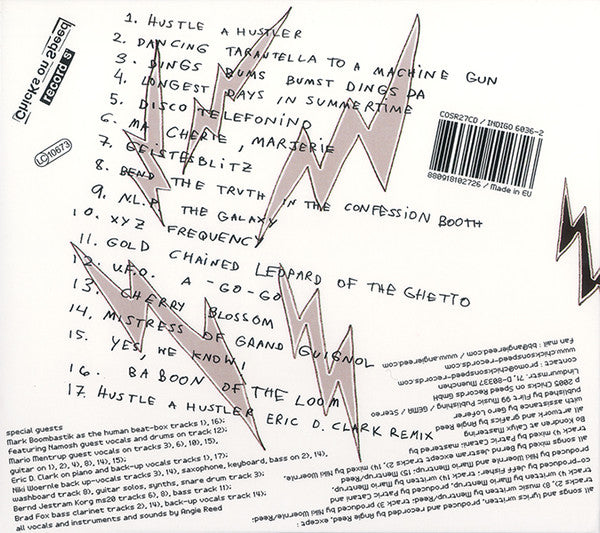 Chicks on Speed
records
LC 10673
COSR27CD / INDIGO 6036-2
880918102726 / Made in EU
1. HUSTLE A HUSTLER
2. DANCING TARANTELLA TO A MACHINE GUN
3. DINGS BUMS BUMST DINGS DA
4. LONGEST DAYS IN SUMMERTIME
5. DISCO TELEFONINO
6. MA CHERIE, MARJERIE
7. GEISTESBLITZ
8. BEND THE TRUTH IN THE CONFESSION BOOTH
9. NL.P THE GALAXY
10. XYZ FREQUENCY
11. GOLD CHAINED LEPPARD OF THE GHETTO
12. U.F.O. A -GO-GO
13. CHERRY BLOSSOM
14. MISTRESS OF GRAND GUIGNOL
15. YES, WE KNOW,
16. BABOON OF THE LOOM
17. HUSTLE A HUSTLER ERIC D. CLARK REMIX
special guests
Mark Boombastik as the human beat-box tracks 1), 16);
featuring Namosh guest vocals and drums on track 12);
Mario Mentrup guest vocals tracks 3), 6), 10), 15),
guitar on 1), 2), 4), 8), 14), 15);
Eric D. Clark on piano and back-up vocals tracks 1), 17);
Niki Woernle back-up vocals tracks 3), 14), saxophone, keyboard, bass on 2), 14),
washboard track 8), guitar solos, synths, snare drum track 3);
Bernd Jestram Korg ms20 tracks 6), 8), bass track 11);
Brad Fox bass clarinet tracks 2), 14), back-up vocals track 14);
all vocals and instruments and sounds by Angie Reed
all songs and lyrics written, produced and recorded by Angie Reed, except :
tracks 2), 8) music written by Mentrup/Reed: track 3) produced by Niki Woernle/Reed;
written by Mario Mentrup, produced by Patric Catani and
co-produced by Jeff Fisher; track 14) written by Mario Mentrup,
produced by Niki Woernle and Mario Mentrup;
all songs mixed by Bernd Jestram except tracks 2), 14) mixed by Niki Woernle,
track 4) mixed by Patric Catani; mastered:
Bo Kondren at Calyx Mastering
all artwork and graphics by Angie Reed
with assistance by Gero Loferer
published by Fift 99 Music Publishing / GEMA / Stereo
p 2005 Chicks on Speed Records GmbH
Lindwurmstr. 71, D-80337 Muenchen
contact : promo@chicksonspeed-records.com
www.chicksonspeed-records.com / www.angiereed.com
Fan mail : bb@angiereed.com